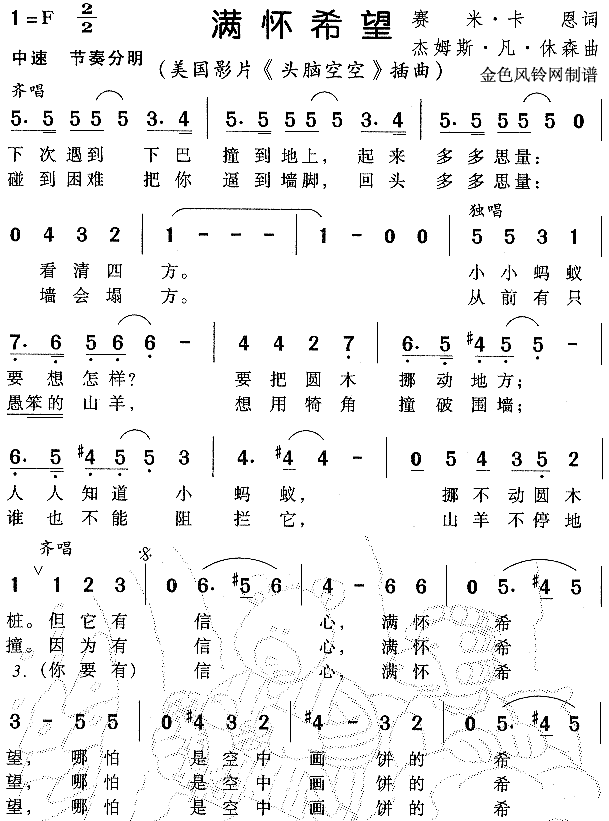 1=F 2/2 满怀希望 赛米·卡恩词
杰姆斯·凡·休森曲
中速 节奏分明 (美国影片《头脑空空》插曲) 金色风铃网制谱
齐唱
5. 5 5 5 5 3. 4 | 5. 5 5 5 5 3. 4 | 5. 5 5 5 5 0
下次遇到 下巴 撞到地上, 起来 多多思量:
碰到困难 把你 逼到墙脚, 回头 多多思量:
独唱
0 4 3 2 | 1 - - - | 1 - 0 0 | 5 5 3 1
看清四方。 小小蚂蚁
墙会塌方。 从前有只
7. 6 5 6 6 - | 4 4 2 7 | 6. 5 #4 5 5 -
要想怎样? 要把圆木 挪动地方;
愚笨的山羊, 想用犄角 撞破围墙;
6. 5 #4 5 5 3 | 4. #4 4 - | 0 5 4 3 5 2
人人知道小 蚂蚁, 挪不动圆木
谁也不能阻 拦它, 山羊不停地
齐唱
1 ∨ 1 2 3 | 0 6. #5 6 | 4 - 6 6 | 0 5. #4 5
桩。但它有 信 心,满怀 希
撞。因为有 信 心,满怀 希
3. (你要有) 信 心,满怀 希
3 - 5 5 | 0 #4 3 2 | #4 - 3 2 | 0 5. #4 5
望, 哪怕 是空中 画 饼的 希
望, 哪怕 是空中 画 饼的 希
望, 哪怕 是空中 画 饼的 希